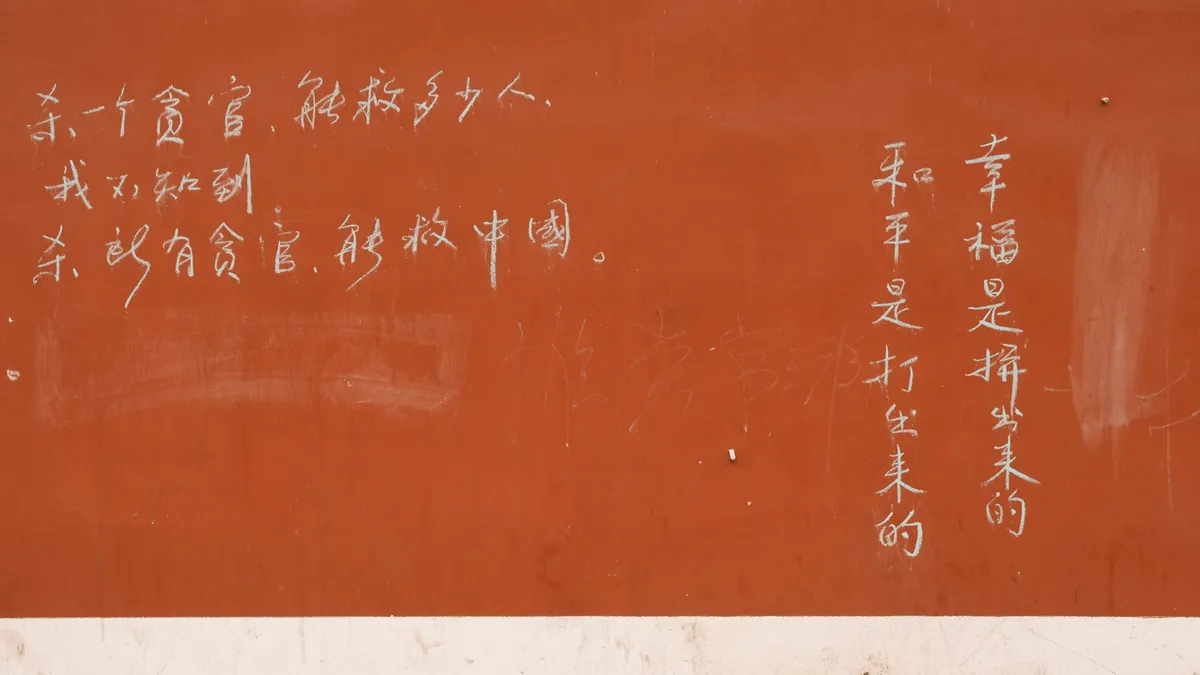 杀一个贪官、能救多少人、
我不知到
杀所有贪官、能救中國。
幸福是拼出来的
和平是打出来的